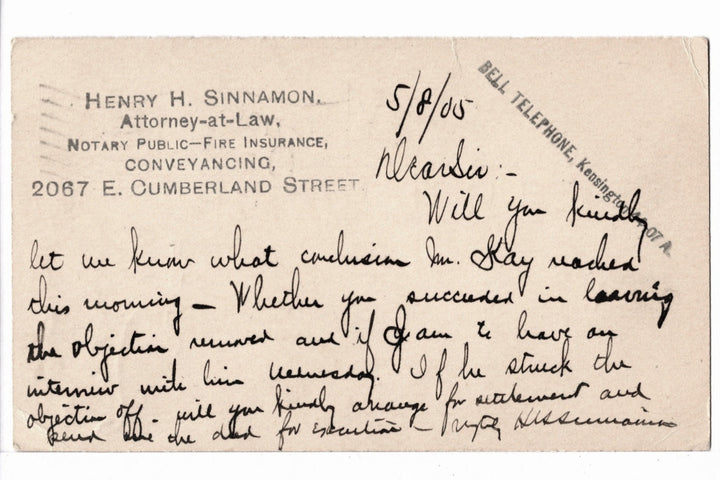 HENRY H. SINNAMON,
Attorney-at-Law,
NOTARY PUBLIC—FIRE INSURANCE,
CONVEYANCING,
2067 E. CUMBERLAND STREET.
BELL TELEPHONE, Kensington 07 A.
5/8/05
Dear Sir:-
Will you kindly
let me know what conclusion Mr. Kay reached
this morning – Whether you succeeded in having
the objection removed and if I am to have an
interview with him Wednesday. If he struck the
objection off – will you kindly arrange for settlement and
send me the deed for execution – HHSinnamon